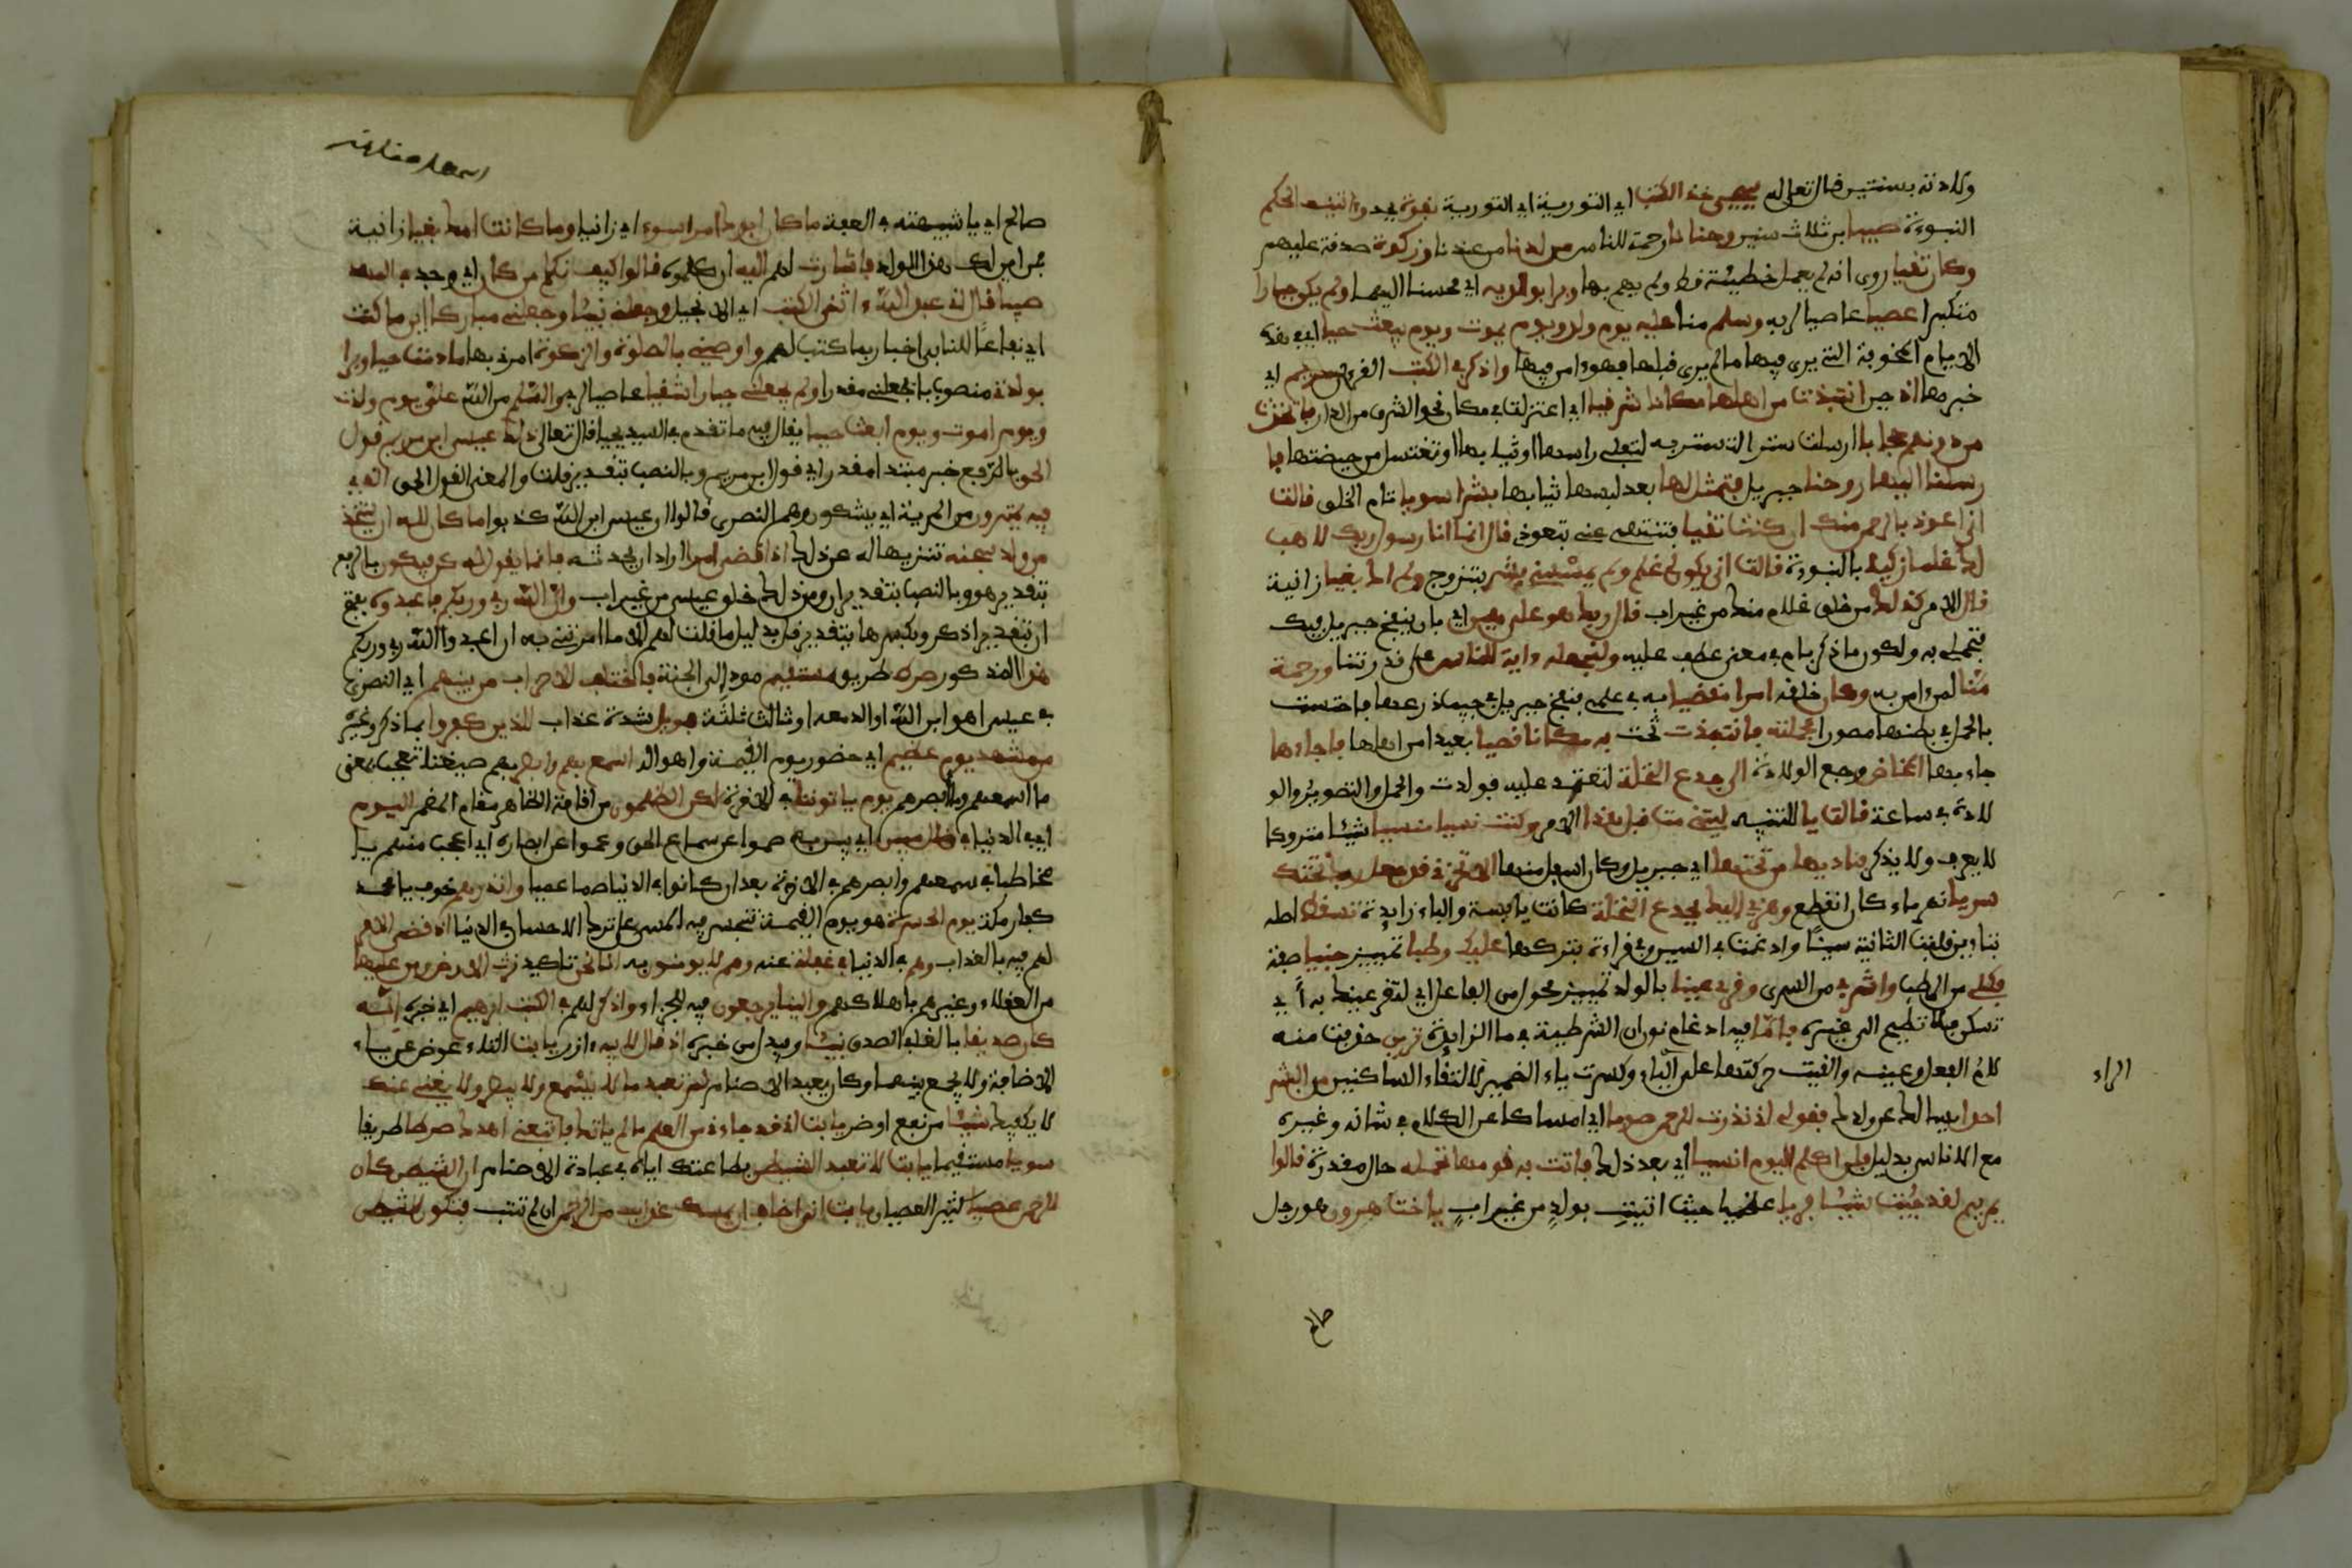 ولادته بسنتين قال تعالى له ييحيى خذ الكتب اي التورية اي التورية بقوة بجد وءاتينه الحكم
النبوءة صبيا ابن ثلاث سنين وحنانا رحمة للناس من لدنا من عندنا وزكوة صدقة عليهم
وكان تقيا روي انه لم يعمل خطيئة قط ولم يهم بها وبرا بولديه اي محسنا اليهما ولم يكن جبارا
متكبرا عصيا عاصيا لربه وسلم منا عليه يوم ولد ويوم يموت ويوم يبعث حيا اي في هذه
الايام المخوفة التي يرى فيها ما لم يرى قبلها فهوءامن فيها واذكر في الكتب القرءان مريم اي
خبرها اذ حين انتبذت من اهلها مكانا شرقيا اي اعتزلت في مكان نحو الشرق من الدار فاتخذت
من دونهم حجابا ارسلت سترا تستتر به لتفلي راسها او ثيابها او تغتسل من حيضتها فا
رسلنا اليها روحنا جبريل فتمثل لها بعد لبسها ثيابها بشرا سويا تام الخلق قالت
اني اعوذ بالرحمن منك ان كنت تقيا فتنتهي عني بتعوذي قال انما انا رسول ربك لاهب
لك غلما زكيا بالنبوءة قالت انى يكون لي غلم ولم يمسسني بشر بتزوج ولم اك بغيا زانية
قال الامر كذلك من خلق غلام منك من غير اب قال ربك هو علي هين اي بان ينفخ جبريل فيك
فتحملي به ولكون ما ذكر بامر في معنى عطف عليه ولنجعله ءاية للناس على قدرتنا ورحمة
منا لمن ءامن به وكان خلقه امرا مقضيا به في علمي فنفخ جبريل في جيب درعها فاحست
بالحمل في بطنها مصورا فحملته فانتبذت تنحت به مكانا قصيا بعيدا من اهلها فاجاءها
جاء بها المخاض وجع الولادة الى جذع النخلة لتعتمد عليه فولدت والحمل والتصوير والو
لادة في ساعة قالت يا للتنبيه ليتني مت قبل هذا الامر وكنت نسيا منسيا شيئا متروكا
لا يعرف ولا يذكر فناديها من تحتها اي جبريل وكان اسفل منها الا تحزني قد جعل ربك تحتك
سريا نهر ماء كان انقطع وهزي اليك بجذع النخلة كانت يابسة والباء زايدة تسقط اصله
بتاءين قلبت الثانية سينا وادغمت في السين وفي قراءة بتركها عليك رطبا تمييز جنيا صفة
فكلي من الرطب واشربي من السري وقري عينا بالولد تمييز محول من الفاعل اي لتقر عينك به اي
تسكن فلا تطمح الى غيره فاما فيه ادغام نون ان الشرطية في ما الزايدة ترين حذفت منه
لام الفعل وعينه والقيت حركتها على الراء وكسرت ياء الضمير لالتقاء الساكنين من البشر
احدا فيسالك عن ولدك فقولي اني نذرت للرحمن صوما اي امساكا عن الكلام في شانه وغيره
مع الاناس بدليل فلن اكلم اليوم انسيا اي بعد ذلك فاتت به قومها تحمله حال مقدرة قالوا
يمريم لقد جئت شيئا فريا عظيما حيث اتيت بولد من غير اب ياخت هرون هو رجل
الراء
صالح
صالح اي يا شبيهته في العفة ما كان ابوك امرا سوء اي زانيا وما كانت امك بغيا زانية
فمن اين لك هذا الولد فاشارت لهم اليه ان كلموه قالوا كيف نكلم من كان اي وجد في المهد
صبيا قال اني عبد الله ءاتني الكتب اي الانجيل وجعلني نبيئا وجعلني مباركا اين ما كنت
اي نفاعا للناس اخبار بما كتب له واوصني بالصلوة والزكوة امرني بها ما دمت حيا وبرا
بولدتي منصوب بجعلني مقدرا ولم يجعلني جبارا شقيا عاصيا لربي والسلم من الله علي يوم ولدت
ويوم اموت ويوم ابعث حيا يقال فيه ما تقدم في السيد يحيى قال تعالى ذلك عيسى ابن مريم قول
الحق بالرفع خبر مبتدا مقدر اي قول ابن مريم وبالنصب بتقدير قلت والمعنى القول الحق الذي
فيه يمترون من المرية اي يشكون وهم النصرى قالوا ان عيسى ابن الله كذبوا ما كان لله ان يتخذ
من ولد سبحنه تنزيها له عن ذلك اذا قضى امرا اراد ان يحدثه فانما يقول له كن فيكون بالرفع
بتقدير هو وبالنصب بتقدير ان ومن ذلك خلق عيسى من غير اب وان الله ربي وربكم فاعبدوه بفتح
ان بتقدير اذكر وبكسرها بتقدير قل بدليل ما قلت لهم الا ما امرتني به ان اعبدوا الله ربي وربكم
هذا المذكور صرط طريق مستقيم مود الى الجنة فاختلف الاحزاب من بينهم اي النصرى
في عيسى اهو ابن الله او اله معه او ثالث ثلثة فويل شدة عذاب للذين كفروا بما ذكر وغيره
من مشهد يوم عظيم اي حضور يوم القيمة واهواله اسمع بهم وابصر بهم صيغتا تعجب بمعنى
ما اسمعهم وما ابصرهم يوم ياتوننا في الاخرة لكن الظلمون من اقامة الظاهر مقام المضمر اليوم
اي في الدنيا في ضلل مبين اي بين به صموا عن سماع الحق وعموا عن ابصاره اي اعجب منهم يا
مخاطبا في سمعهم وابصرهم في الاخرة بعد ان كانوا في الدنيا صما عميا وانذرهم خوف يا محمد
كفار مكة يوم الحسرة هو يوم القيمة يتحسر فيه المسئ على ترك الاحسان في الدنيا اذ قضي الامر
لهم فيه بالعذاب وهم في الدنيا في غفلة عنه وهم لا يومنون به انا نحن تاكيد نرث الارض ومن عليها
من العقلاء وغيرهم باهلاكهم والينا يرجعون فيه للجزاء واذكر لهم في الكتب ابرهيم اي خبره انه
كان صديقا بالغا في الصدق نبيئا ويبدل من خبره اذ قال لابيه ءازر يابت التاء عوض عن ياء
الاضافة ولا يجمع بينهما وكان يعبد الاصنام لم تعبد ما لا يسمع ولا يبصر ولا يغني عنك
لا يكفيك شيئا من نفع او ضر يابت اني قد جاءني من العلم ما لم ياتك فاتبعني اهدك صرطا طريقا
سويا مستقيما يابت لا تعبد الشيطن بطاعتك اياه في عبادة الاصنام ان الشيطن كان
للرحمن عصيا كثير العصيان يابت اني اخاف ان يمسك عذاب من الرحمن ان لم تتب فتكون للشيطن